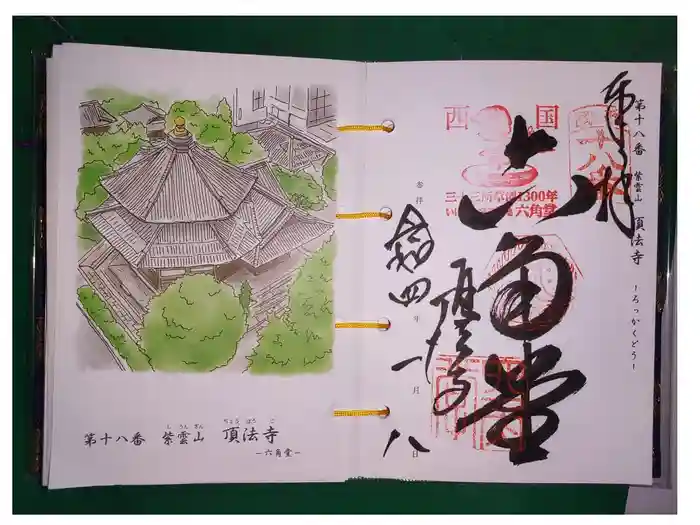 第十八番 紫雲山 頂法寺
し うんざん ちょう ほう じ
―六角堂―
第十八番 紫雲山 頂法寺 ―ろっかくどう―
奉拝
六角堂
頂法寺
参拝 令和四年 十一月 八日
西国
三十三所草創1300年
六角堂